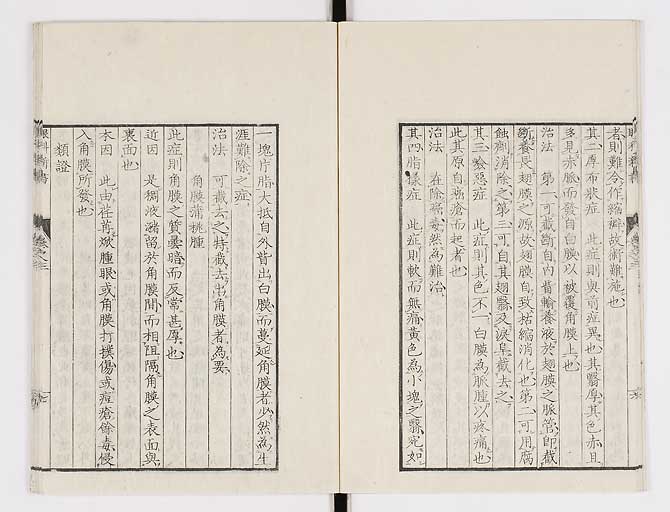 者則難令作縮褥故術難施也
其二厚布狀症　此症則與前症異也其翳厚其色赤且
多見赤脈而發自白膜以被覆角膜上也
治法　第一可截斷自內眥輸養液於翅膜之脈管即截
斷養長翅膜之源故翅膜自致枯縮消化也第二可用腐
蝕劑消除之第三可自其翅翳及淚阜截去之
其三惡症　此症則其色不一白膜為脈腫以疼痛也
此其原自瘡而起者也
治法　在除毒然為難治
其四脂樣症　此症則軟而無痛黃色為小塊之翳宛如
一塊片脂大抵自外眥出白膜而蔓延角膜者少然為生
涯難除之症
治法　可截去之特截去出角膜者為要
角膜葡桃腫
此症則角膜之質曇暗而反常甚厚也
近因　是稠液瀦留於角膜間而相阻隔角膜之表面與
裏面也
本因　此由往昔焮腫眼或角膜打撲傷或痘瘡餘毒侵
入角膜所發也
類證
眼科新書
卷之三